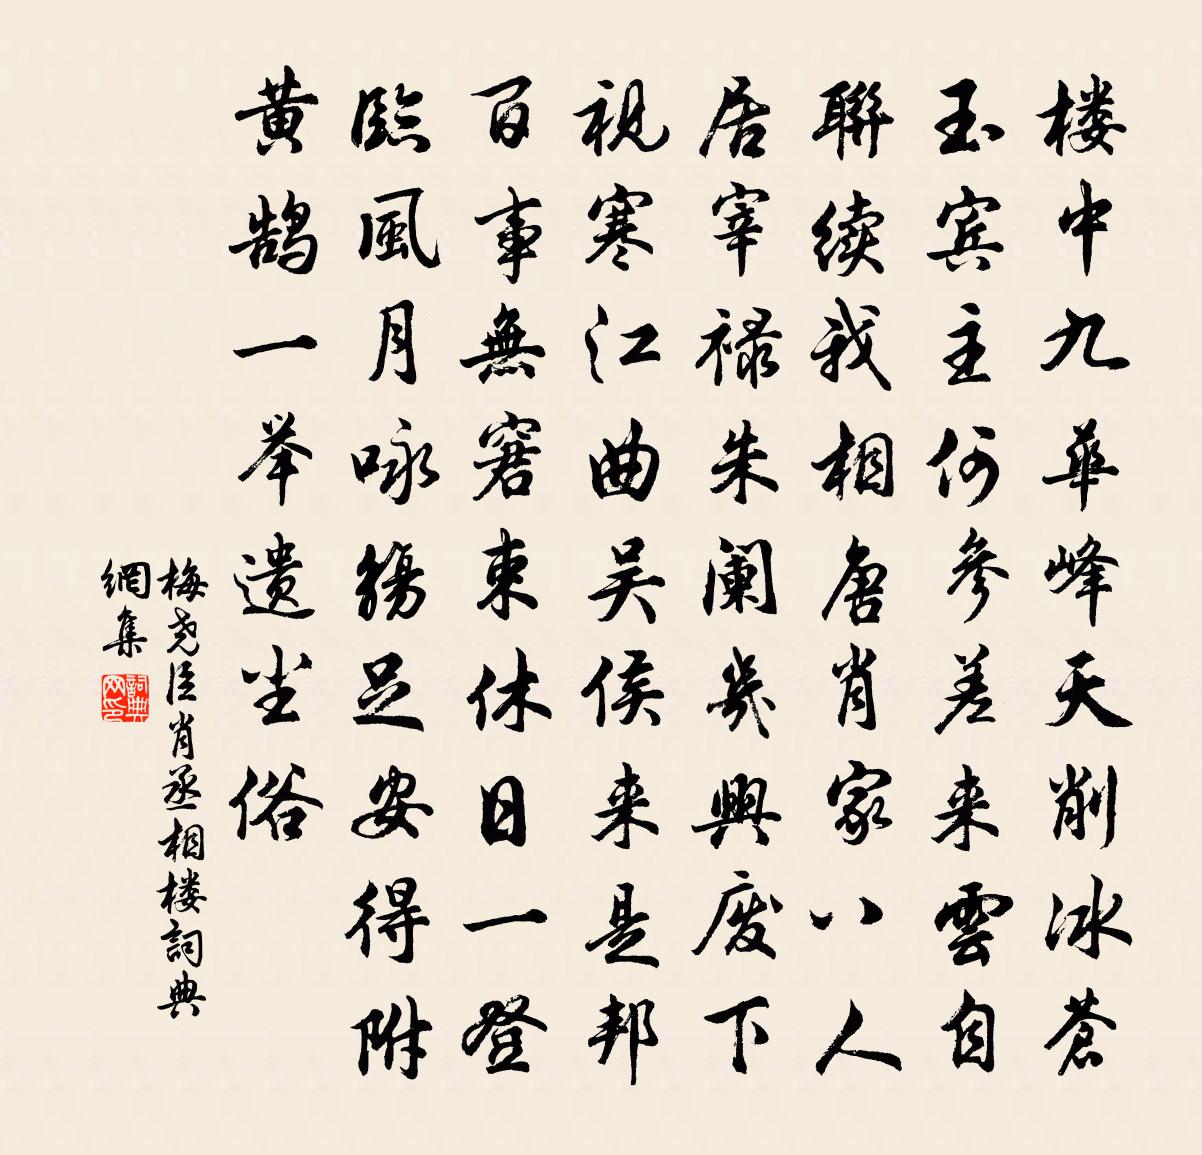 楼中九華峰天削冰蒼
玉宾主何參差来雲自
聯续我相唐肖家八人
居宰禄朱阑幾興废下
視寒江曲吴侯来是邦
百事無窘束休日一登
臨風月咏觴足安得附
黄鹄一举遗尘俗
梅尧臣肖丞相楼詞典
網集
詞典网印